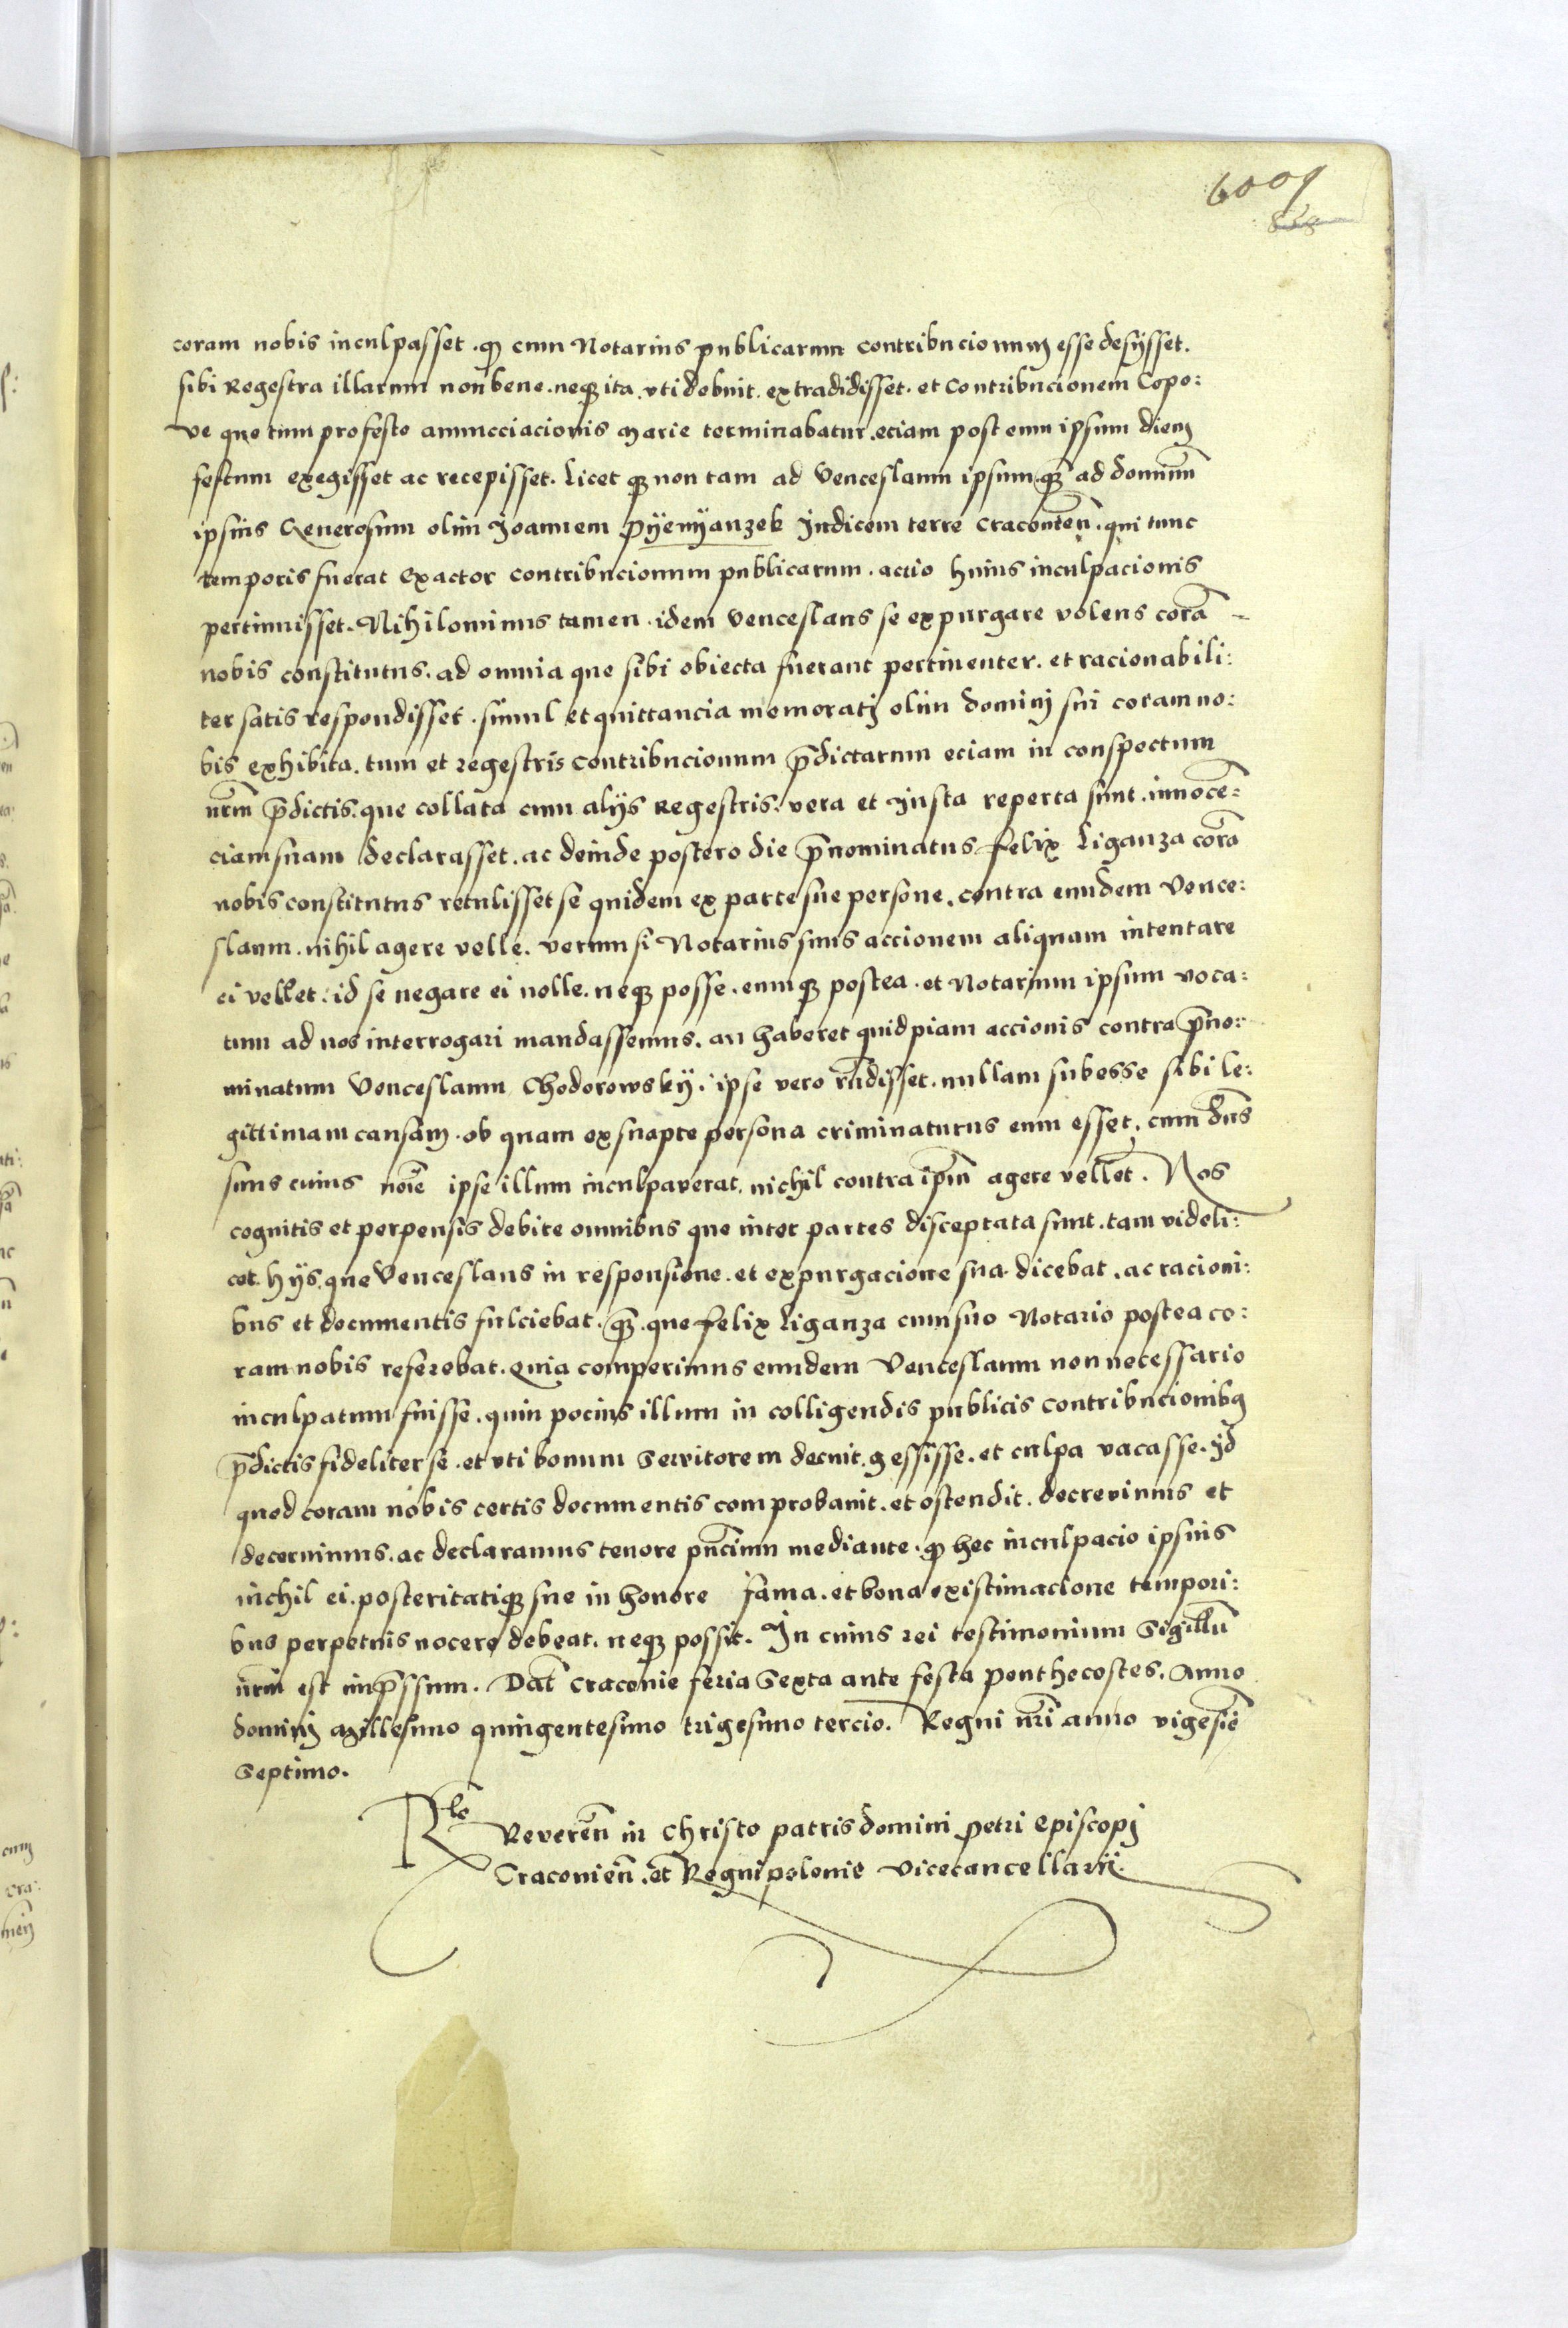 6009
coram nobis inculpasset . qꝫ cum Notarius publicarum contribucionum esse desijsset .
sibi Regestra illarum non bene . neqꝫ ita . vti debuit . extradidisset . et Contribucionem Copo:
ve que tum pro festo annuncciacionis Marie terminabatur . eciam post eum ipsum diem
festum exegisset ac recepisset . Licet qꝫ non tam ad Venceslaum ipsum qꝫ̃ ad dominum̄
ipsius Generosum olim Joannem Pÿenÿanzek Judicem terre Cracouien̄ . qui tunc
temporis fuerat Exactor contribucionum publicarum . actio huius inculpacionis
pertinuisset . Nihilominus tamen . idem Venceslaus se expurgare volens corā
nobis constitutus . ad omnia que sibi obiecta fuerant pertinenter . et racionabili:
ter satis respondisset . simul et quittancia memoratj olim dominj sui coram no:
bis exhibita . tum et regestris contribucionum p̄dictarum eciam in conspectum
nr̄m p̄dictis . que collata cum alijs Regestris . vera et Justa reperta sunt . innocē:
ciam suam declarasset . ac deinde postero die p̄nominatus Felix Liganza corā
nobis constitutus retulisset se quidem ex parte sue persone . contra eundem Vence:
slaum . nihil agere velle . verum si Notarius suus accionem aliquam intentare
ei vellet . id se negare ei nolle . neqꝫ posse . eumqꝫ postea . et Notarium ipsum voca:
tum ad nos interrogari mandassemus . an haberet quidpiam accionis contra p̄no:
minatum Venceslaum Chodorowskÿ . ipse vero rn̄disset . nullam subesse sibi le:
gittimam causam . ob quam ex suapte persona criminaturus eum esset . cum dn̄s
suus cuius noīe ipse illum inculpaverat . nichil contra ip̄m agere vellet . Nos
cognitis et perpensis debite omnibus que inter partes disceptata sunt . tam videli:
cet . hijs . que Venceslaus in responsione . et expurgacione sua dicebat . ac racioni:
bus et documentis fulciebat . qꝫ̃ . que Felix Liganza cum suo Notario postea co:
ram nobis referebat . Quia comperimus eundem Venceslaum non necessario
inculpatum fuisse . quin pocius illum in colligendis publicis contribucionibꝫ
p̄dictis fideliter se . et vti bonum servitorem decuit . gessisse . et culpa vacasse . Jd
quod coram nobis certis documentis comprobauit . et ostendit . decrevimus et
decernimus . ac declaramus tenore pn̄cium mediante . qꝫ hec inculpacio ipsius
nichil ei . posteritatiqꝫ sue in honore fama . et bona existimacione tempori:
bus perpetuis nocere debeat . neqꝫ possit . In cuius rei testimonium Sigillū
nr̄m est imp̄ssum . Dat̄ Cracouie feria Sexta ante festa penthecostes . Anno
dominj Millesimo quingentesimo trigesimo tercio . Regni nr̄i anno vigesiō
septimo .
Rlo
Reveren̄ in Christo patris domini Petri Episcopj
Cracouien̄ . et Regni polonie vicecancellarij .